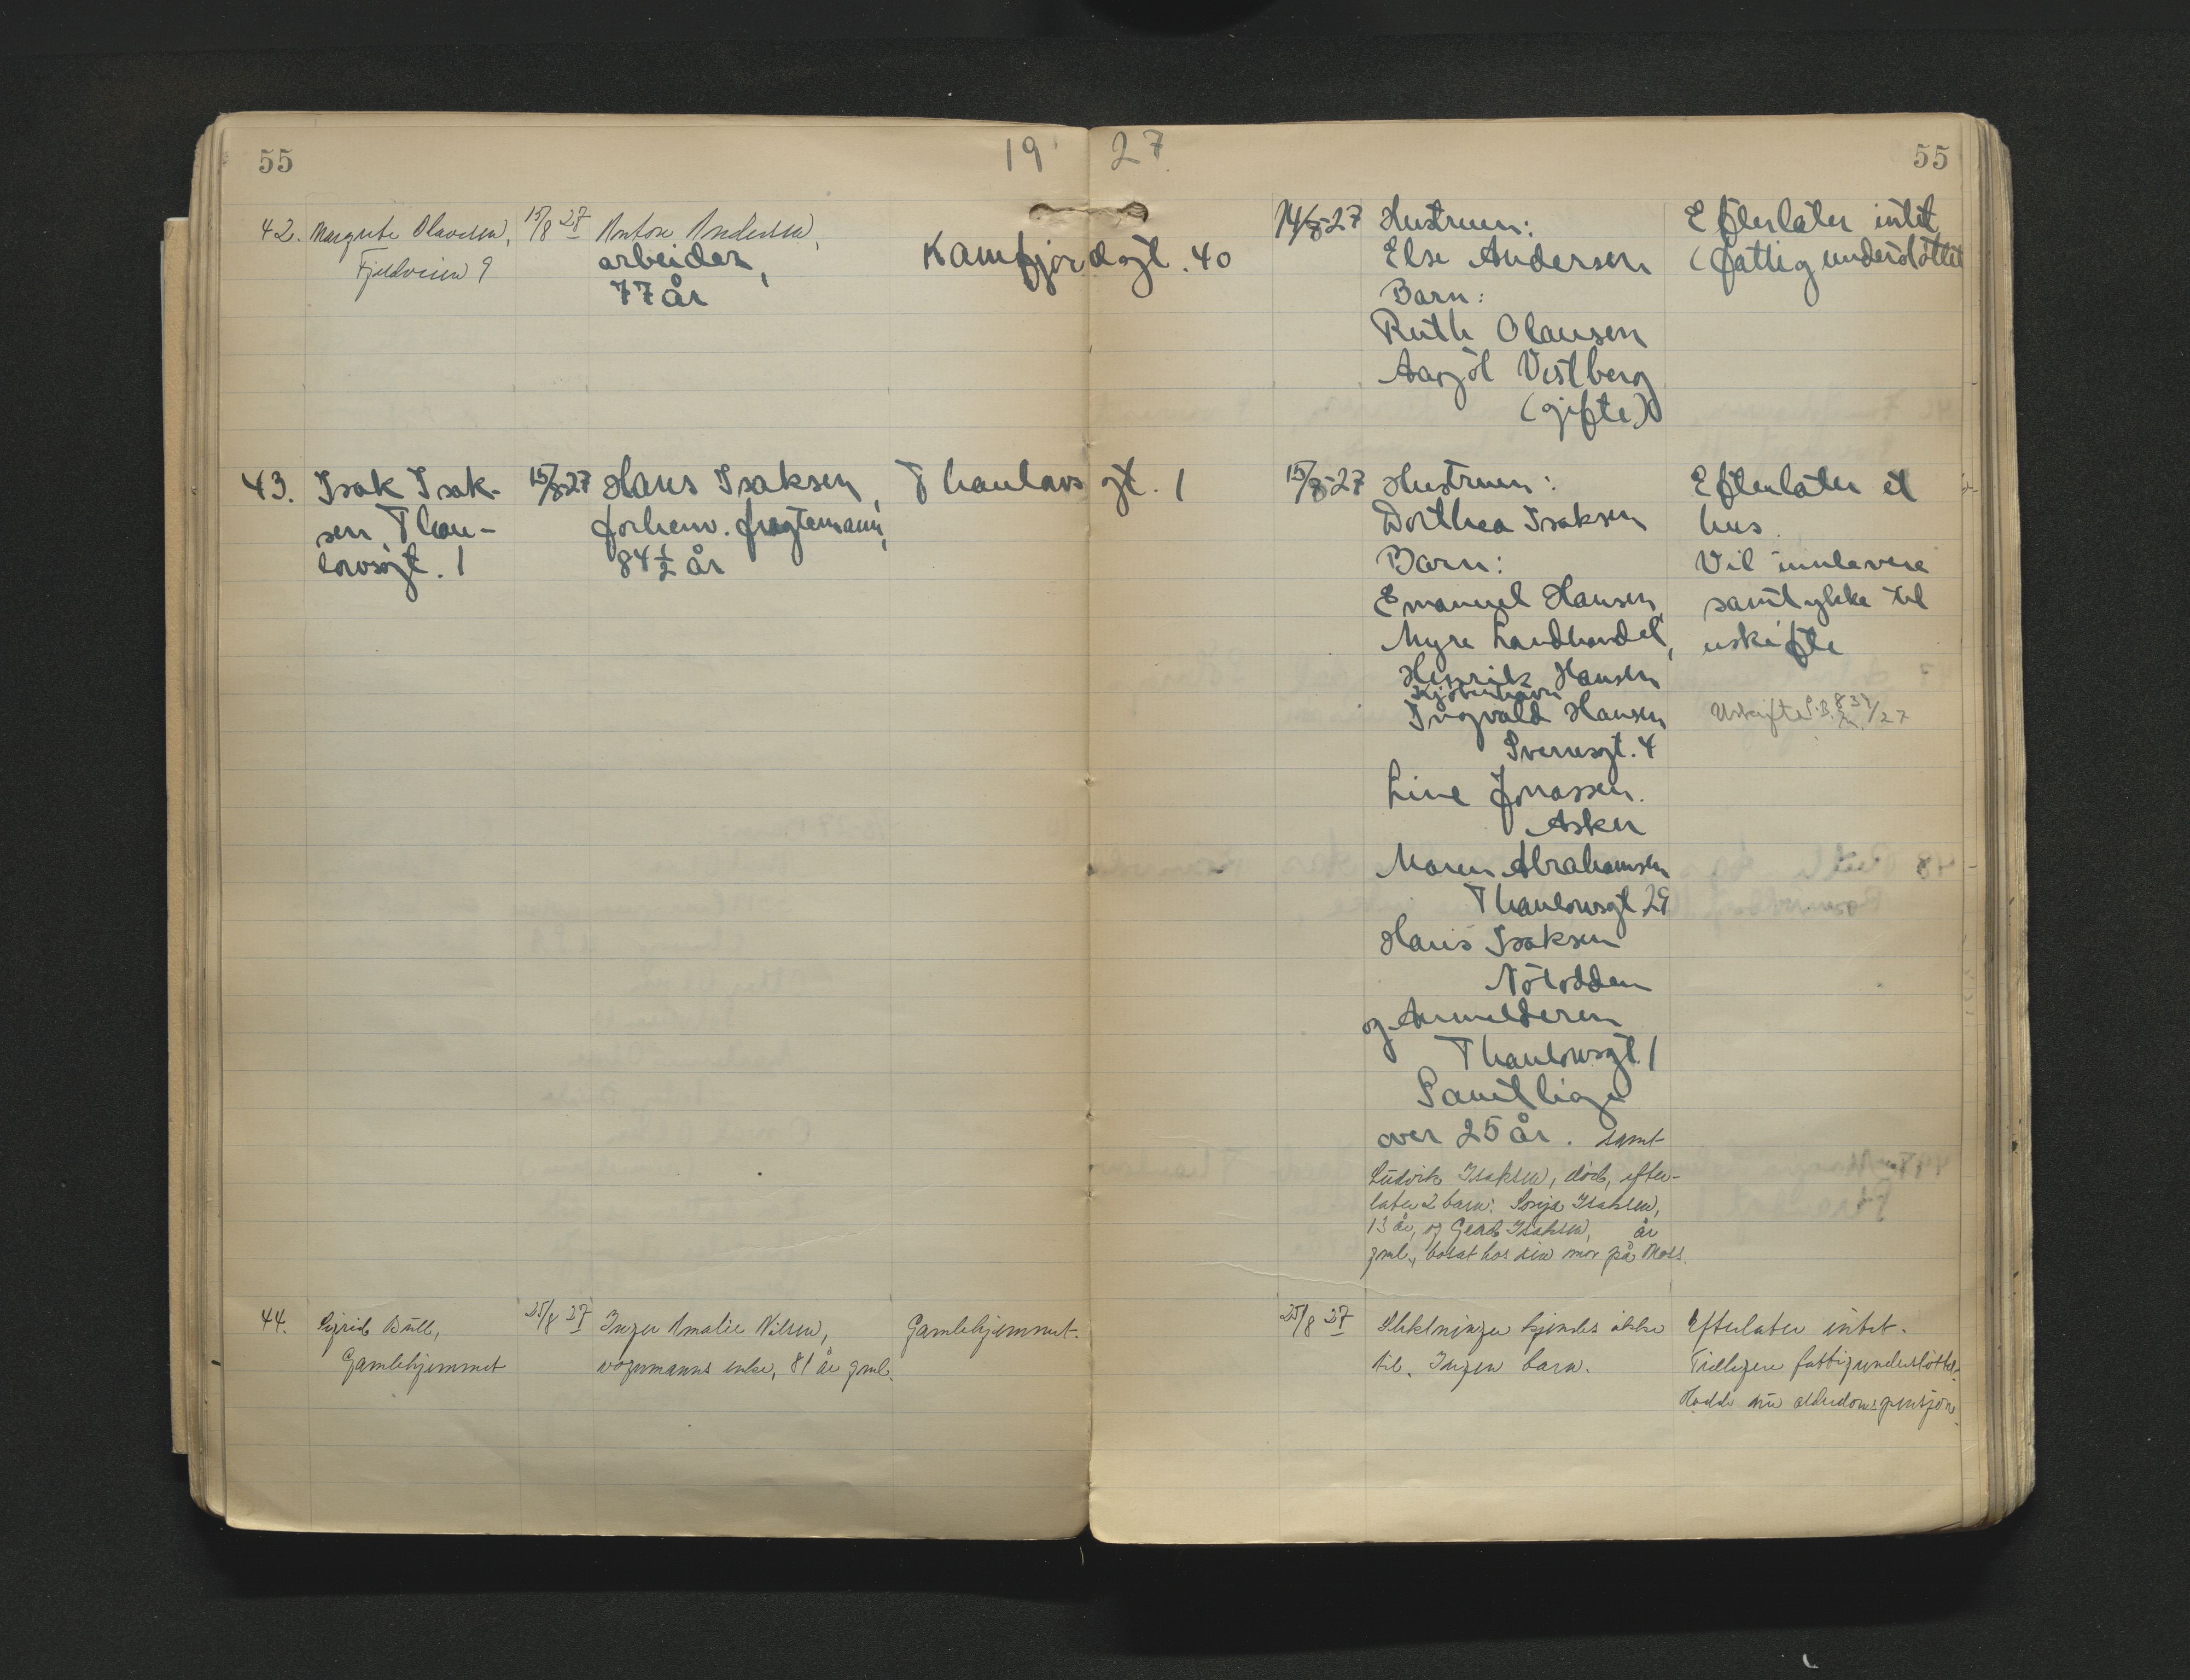 55
19 27
55
42. Margrete Olavesen, 15/8 27 Anton Andersen, Kamfjordgt. 40 14/8-27 Hustruen: Efterlater intet
Fjeldveien 9 arbeider, Else Andersen (fattigunderstøttet
77 år Barn:
Ruth Olausen
Aagot Vestberg
(gifte)
43. Isak Isak- 15/8-27 Hans Isaksen, Thaulows gt. 1 15/8-27 Hustruen: Efterlater et
sen, Thau- forhenv. fragtemann, Dorthea Isaksen hus.
lowsgt. 1 84 1/2 år Barn: Vil innlevere
Emanuel Hansen, samtykke til
Myre Landhandel, uskifte
Henrik Hansen
Kjøbenhavn
Ingvald Hansen Uskifte S.B. /27
Sverresgt. 4
Line Jonassen.
Asker
Maren Abrahamsen
Thaulowsgt 29
Hans Isaksen
Nôtodden
og Anmelderen
Thaulowsgt. 1
Samtlige
over 25 år. samt
Ludvik Isaksen, død, efter-
later 2 barn: Sonja Isaksen,
13 år, og Gerd Isaksen, år
gml., bosat hos sin mor på Moss.
44. Sigrid Bull, 25/8 27 Inger Amalie Nilsen, Gamlehjemmet. 25/8 27 Slektninger kjendes ikke Efterlater intet.
Gamlehjemmet vognmanns enke, 81 år gml. til. Ingen barn. Tidligere fattigunderstøttet.
Hadde nu alderdomspensjon.